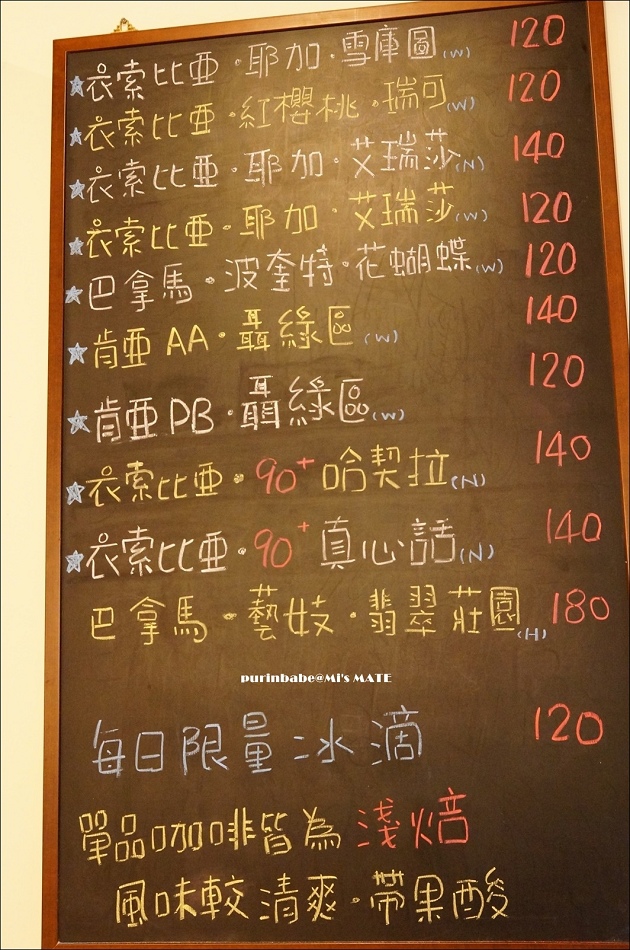 ★衣索比亞·耶加·雪庫圖(W) 120
★衣索比亞·紅櫻桃·瑞可(W) 120
★衣索比亞·耶加·艾瑞莎(N) 140
★衣索比亞·耶加·艾瑞莎(W) 120
★巴拿馬·波奎特·花蝴蝶(W) 120
★肯亞AA·聶綠區(W) 140
★肯亞PB·聶綠區(W) 120
★衣索比亞·90+哈契拉(N) 140
★衣索比亞·90+真心話(N) 140
巴拿馬·藝妓·翡翠莊園(H) 180
purinbabe@Mi's MATE
每日限量冰滴 120
單品咖啡皆為淺焙
風味較清爽·帶果酸